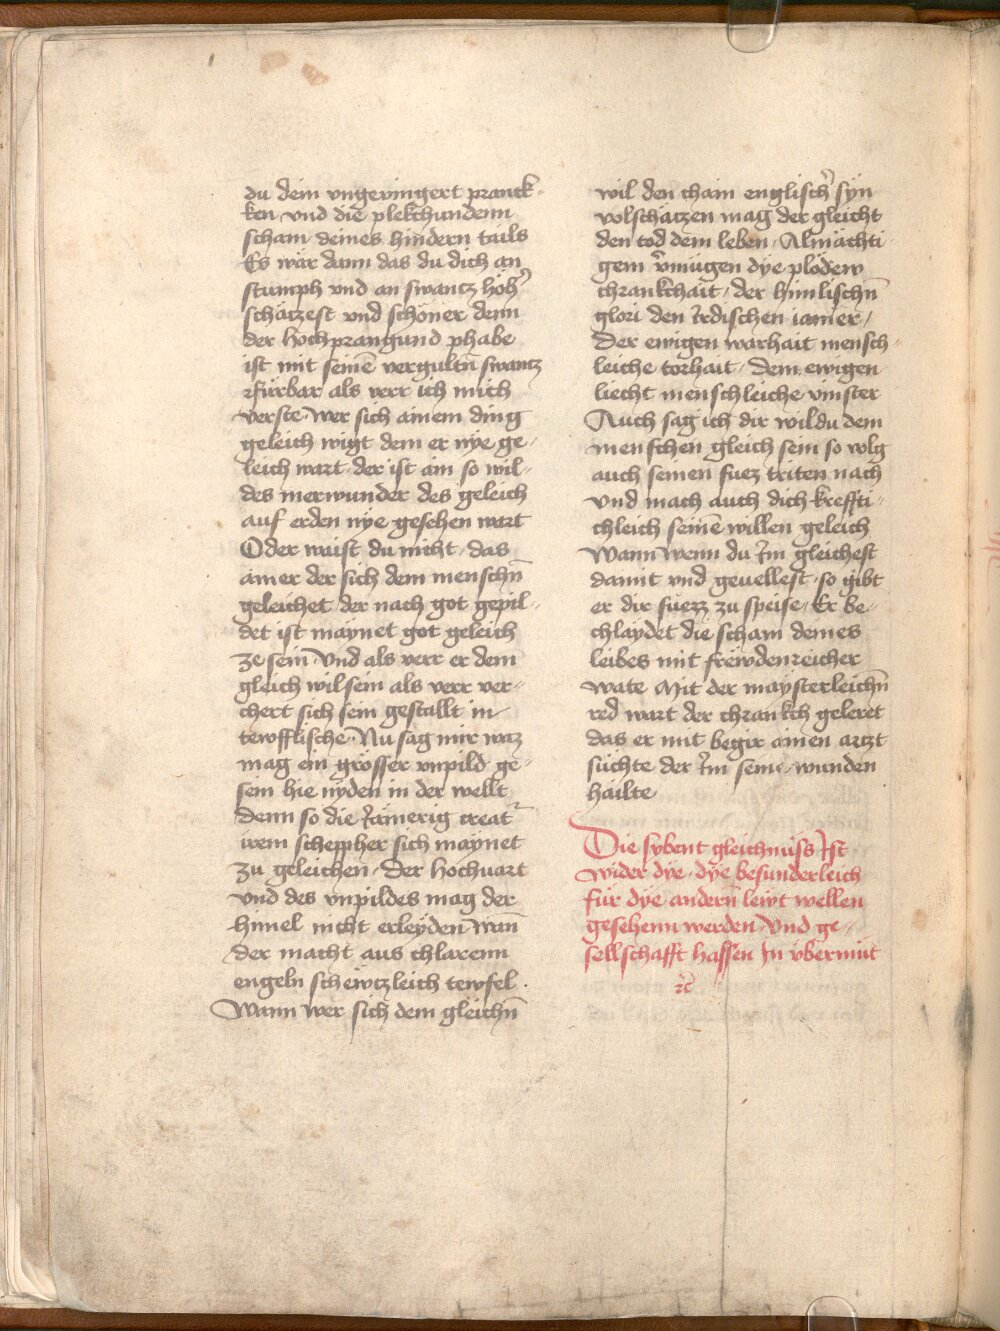 du dein vngeuingert pranck-
ken vnd die plekchundenn
scham deines hindern tails
Es wär dann das du dich an
stumph vnd an swancz höh̕
schäczest vnd schöner denn
der hochprangund phabe
ist mit seinē vergultn̄ swancz
Fürbar als verr ich mich
verste wer sich ainem ding
geleich wigt dem er nye ge-
leich wart der ist am so wil-
des merwunder des geleich
auf erden nye gesehen wart
Oder waist du nicht das
ainer der sich dem menschn̄
geleichet der nach got gepil-
det ist maynet got geleich
ze sein Vnd als verr er dem
gleich wil sein als verr ver-
chert sich sein gestallt in
tewfflische Nu sag mir waz
mag ein grosser vnpild ge-
sein hie nyden in der wellt
denn so die iämerig creat᷑
irem schephher sich maynet
zu geleichen Der hochuart
vnd des vnpildes mag der
himel nicht erleyden wan̄
der macht aus chlarenn
engeln schewczleich tewfel
Wann wer sich dem gleichn̄
wil den chain englisch̕ syn
volschaczen mag der gleicht
den tod dem leben Almächti
gem v̕mügen dye plödew
chrankchait der himlischn̄
glori den irdischen iamer
Der ewigen warhait mensch-
leiche torhait dem ewigen
liecht menschleiche vinster
Auch sag ich dir wildu dem
menschen gleich sein so volg
auch seinen fuez triten nach
vnd mach auch dich kreffti-
chleich seinē willen geleich
Wann wenn du im gleichest
damit vnd geuellest so gibt
er dir füezz zu speise Er be-
chlaydet die scham deines
leibes mit frewdenreicher
wate Mit der maysterleichn̄
red wart der chrankch geleret
das er mit begir ainen arczt
süchte der im seine wunden
hailte
Die sybent gleichnüss Ist
wider dye dye besunderleich
für dye andern̄ lewt wellen
gesehenn werden Vnd ge-
sellschafft hassen In vbermüt
ꝛc̄